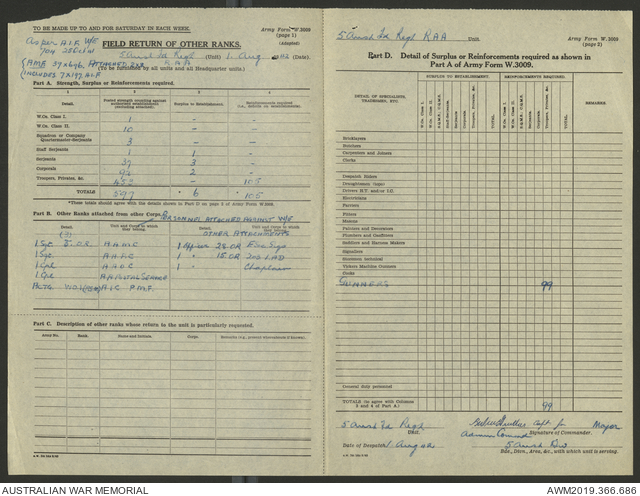 TO BE MADE UP TO AND FOR SATURDAY IN EACH WEEK.
Army Form W.3009
(page 1)
(Adapted)
FIELD RETURN OF OTHER RANKS.
5 Aust Fd Regt (Unit) 1 Aug 1942 (Date).
RAA
(To be furnished by all units and all Headquarter units.)
(INCLUDES 7x197 A.I.F
Part A. Strength, Surplus or Reinforcements required.
1 2 3 4
Detail. Posted strength counting against authorized establishment (excluding attached). Surplus to Establishment. Reinforcements required.
W.Os. Class I. 1 - -
W.Os. Class II. 10 - -
Squadron or Company Quartermaster-Serjeants 3 - -
Staff Serjeants 1 1 -
Serjeants 37 3 -
Corporals 2 -
Troopers, Privates, &c. 453 - 105
TOTALS 597 * 6 * 105
*These totals should agree with details shown in Part D on page 2 of Army Form W.3009.
Part B. Other Ranks attached from other Corps.
PERSONNEL ATTACHED AGAINST W/E
Detail. Unit and Corps of which they belong. Detail. Unit and Corps of which they belong.
OTHER ATTACHMENTS
1 Sgt 5 O.R. A.A.M.C 1 Officer 28 OR Sec Sigs
1 Sgt. 1 " 15 OR 202 LAD
1 Cpl A.A.O.C 1 " Chaplain
1 Cpl A.A. POSTAL SERVICE
Part C. Description of other ranks whose return to the unit is particularly requested.
Army No. Rank. Name and Initials. Corps. Remarks (e.g., present whereabouts if known).
5 Aust Fd Regt RAA Unit.
Army Form W. 3009
(page 2)
Part D. Detail of Surplus or Reinforcements required as shown in
Part A of Army Form W.3009.
DETAIL OF SPECIALISTS, TRADESMEN, ETC.
SURPLUS TO ESTABLISHMENT.
REINFORCEMENTS REQUIRED.
REMARKS
W.Os. Class I. W.Os. Class II. S.Q.M.S., C.Q.M.S. Staff-Serjeants. Serjeants. Corporals. Troopers, Privates, &c. TOTAL.
W.Os. Class I. W.Os. Class II. S.Q.M.S., C.Q.M.S. Staff-Serjeants. Serjeants. Corporals. Troopers, Privates, &c. TOTAL.
Bricklayers
Butchers
Carpenters and Joiners
Clerks
Despatch Riders
Draughtsmen (topo)
Drivers H.T. and/or I.C.
Electricians
Farriers
Fitters
Masons
Painters and Decorators
Plumbers and Gasfitters
Saddlers and Harness Makers
Signallers
Storemen, technical
Vickers Machine Gunners
Cooks
GUNNERS 99
General duty personnel
TOTALS (to agree with Columns 3 and 4 of Part A.) 99
5 Aust Fd Regt
Unit.
Capt for Major
Signature of Commander.
Date of Despatch 1 Aug 42
5 Aust Div
Bde., Divn., Area, &c., with which unit is serving.
AUSTRALIAN WAR MEMORIAL
AWM2019.366.686